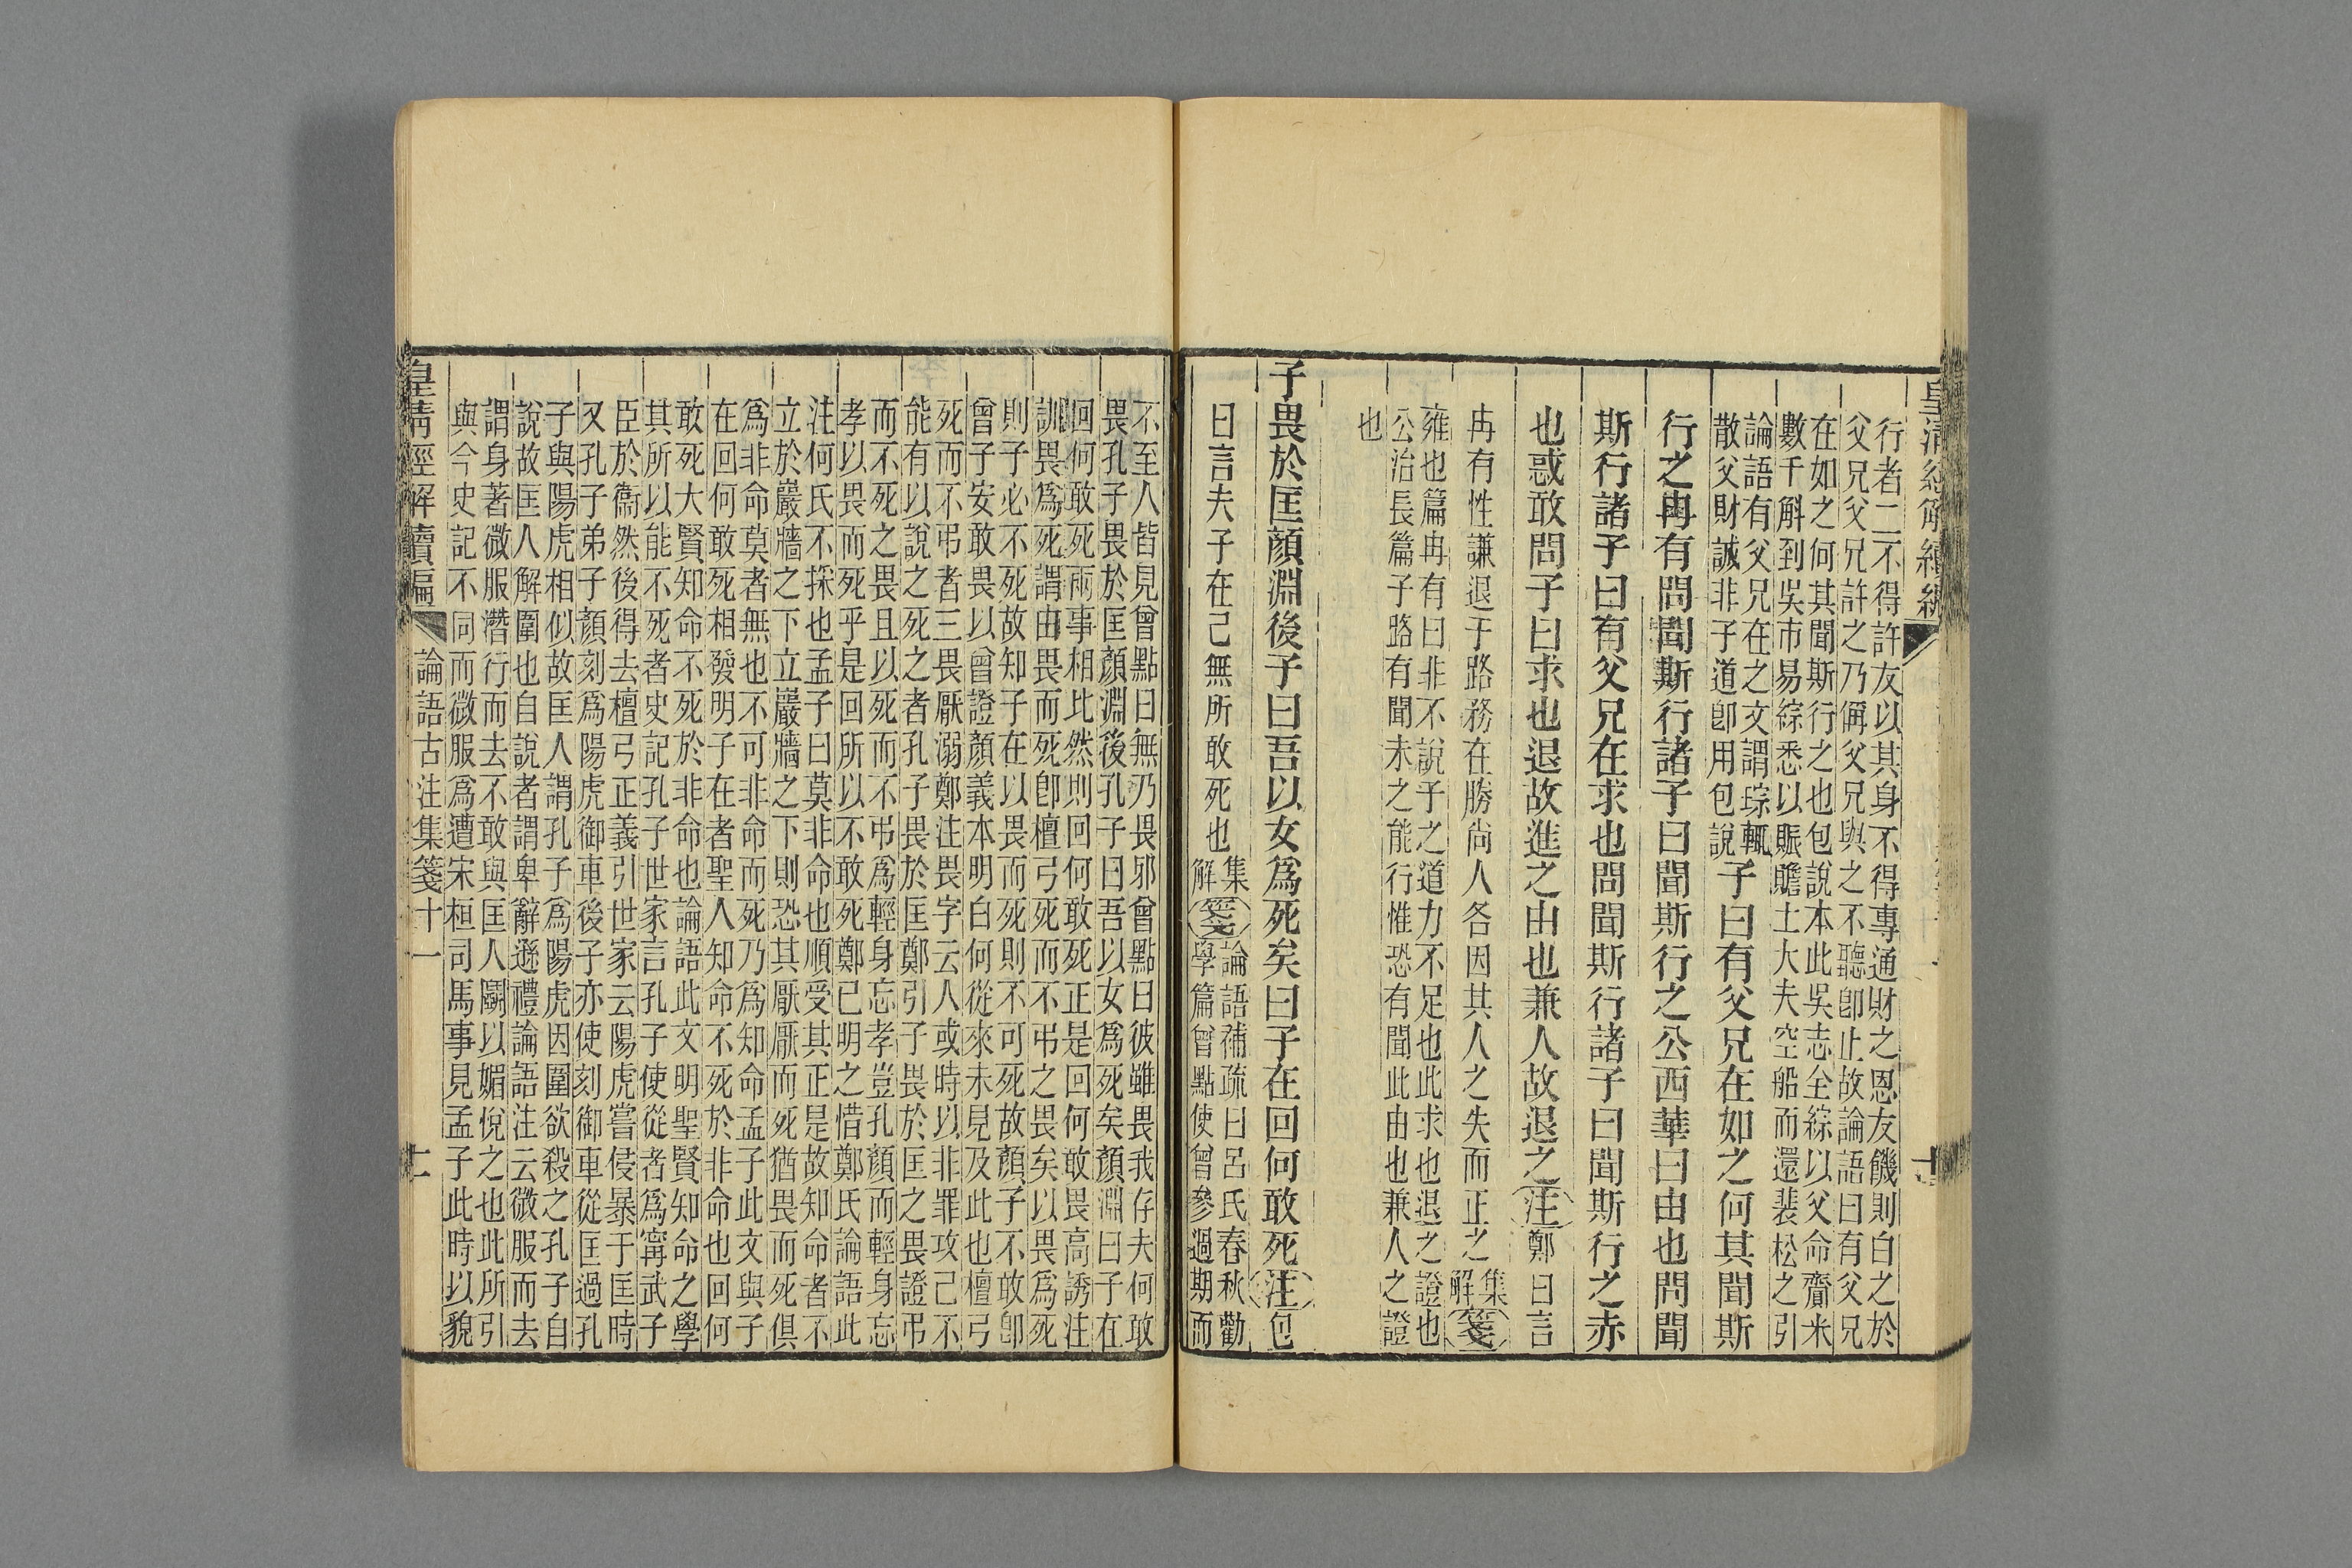 皇清經解續編
行者二不得許友以其身不得專通財之恩友饑則白之於
父兄父兄許之乃稱父兄與之不聽卽止故論語曰有父兄
在如之何其聞斯行之也包說本此吳志全綜以父命齎米
數千斛到吳市易綜悉以賑贍士大夫空船而還裴松之引
論語有父兄在之文謂琮輒
散父財誠非子道卽用包說
子曰有父兄在如之何其聞斯
行之冉有問聞斯行諸子曰聞斯行之公西華曰由也問聞
斯行諸子曰有父兄在求也問聞斯行諸子曰聞斯行之赤
也惑敢問子曰求也退故進之由也兼人故退之注鄭曰言
冉有性謙退子路務在勝尚人各因其人之失而正之集解箋
雍也篇冉有曰非不說子之道力不足也此求也退之證也
公冶長篇子路有聞未之能行惟恐有聞此由也兼人之證
也
子畏於匡顏淵後子曰吾以女爲死矣曰子在回何敢死注包
曰言夫子在己無所敢死也集解箋
論語補疏曰呂氏春秋勸
學篇曾點使曾參過期而
不至人皆見曾點曰無乃畏邪曾點曰彼雖畏我存夫何敢
畏孔子畏於匡顏淵後孔子曰吾以女爲死矣顏淵曰子在
回何敢死兩事相比然則回何敢死正是回何敢畏高誘注
訓畏爲死謂由畏而死卽檀弓死而不弔之畏矣以畏爲死
則子必不死故知子在以畏而死則不可死故顏子不敢卽
曾子安敢畏以曾證顏義本明白何從來未見及此也檀弓
死而不弔者三畏厭溺鄭注畏字云人或時以非罪攻己不
能有以說之死之者孔子畏於匡鄭引子畏於匡之畏證弔
而不死之畏且以死而不弔爲輕身忘孝豈孔顏而輕身忘
孝以畏而死乎是回所以不敢死鄭已明之惜鄭氏論語此
注何氏不採也孟子曰莫非命也順受其正是故知命者不
立於巖牆之下立巖牆之下則恐其厭厭而死猶畏而死俱
爲非命莫者無也不可非命而死乃爲知命孟子此文與子
在回何敢死相發明子在者聖人知命不死於非命也回何
敢死大賢知命不死於非命也論語此文明聖賢知命之學
其所以能不死者史記孔子世家言孔子使從者爲甯武子
臣於衞然後得去檀弓正義引世家云陽虎嘗侵暴于匡時
又孔子弟子顏刻爲陽虎御車後孔子亦使刻御車從匡過孔
子與陽虎相似故匡人謂孔子爲陽虎因圍欲殺之孔子自
說故匡人解圍也自說者謂卑辭遜禮論語注云微服而去
謂身著微服潛行而去不敢與匡人鬭以媚悅之也此所引
與今史記不同而微服爲遭宋桓司馬事見孟子此時以貌
皇清經解續編 論語古注集箋十一 十二